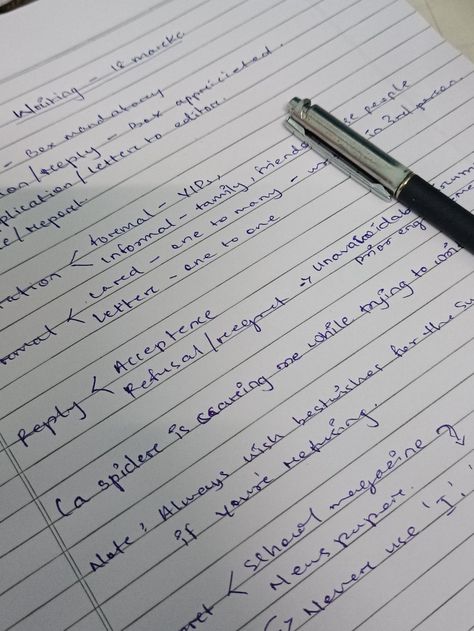 Writing - 12 marks
- Box mandatory
/reply - Box appriciated.
plication/letters to editor.
/report
formal - VIPs,
Informal - family, friends, people
card - one to many - in 3rd person
letter - one to one
Reply < Acceptence
Refusal/regret -> unavoidable
prior eng
(a spider is scaring me while trying to wri
Note: Always wish bestwishes for the su
if you're refusing.
< School magazine
News paper.
-> Never use 'I',